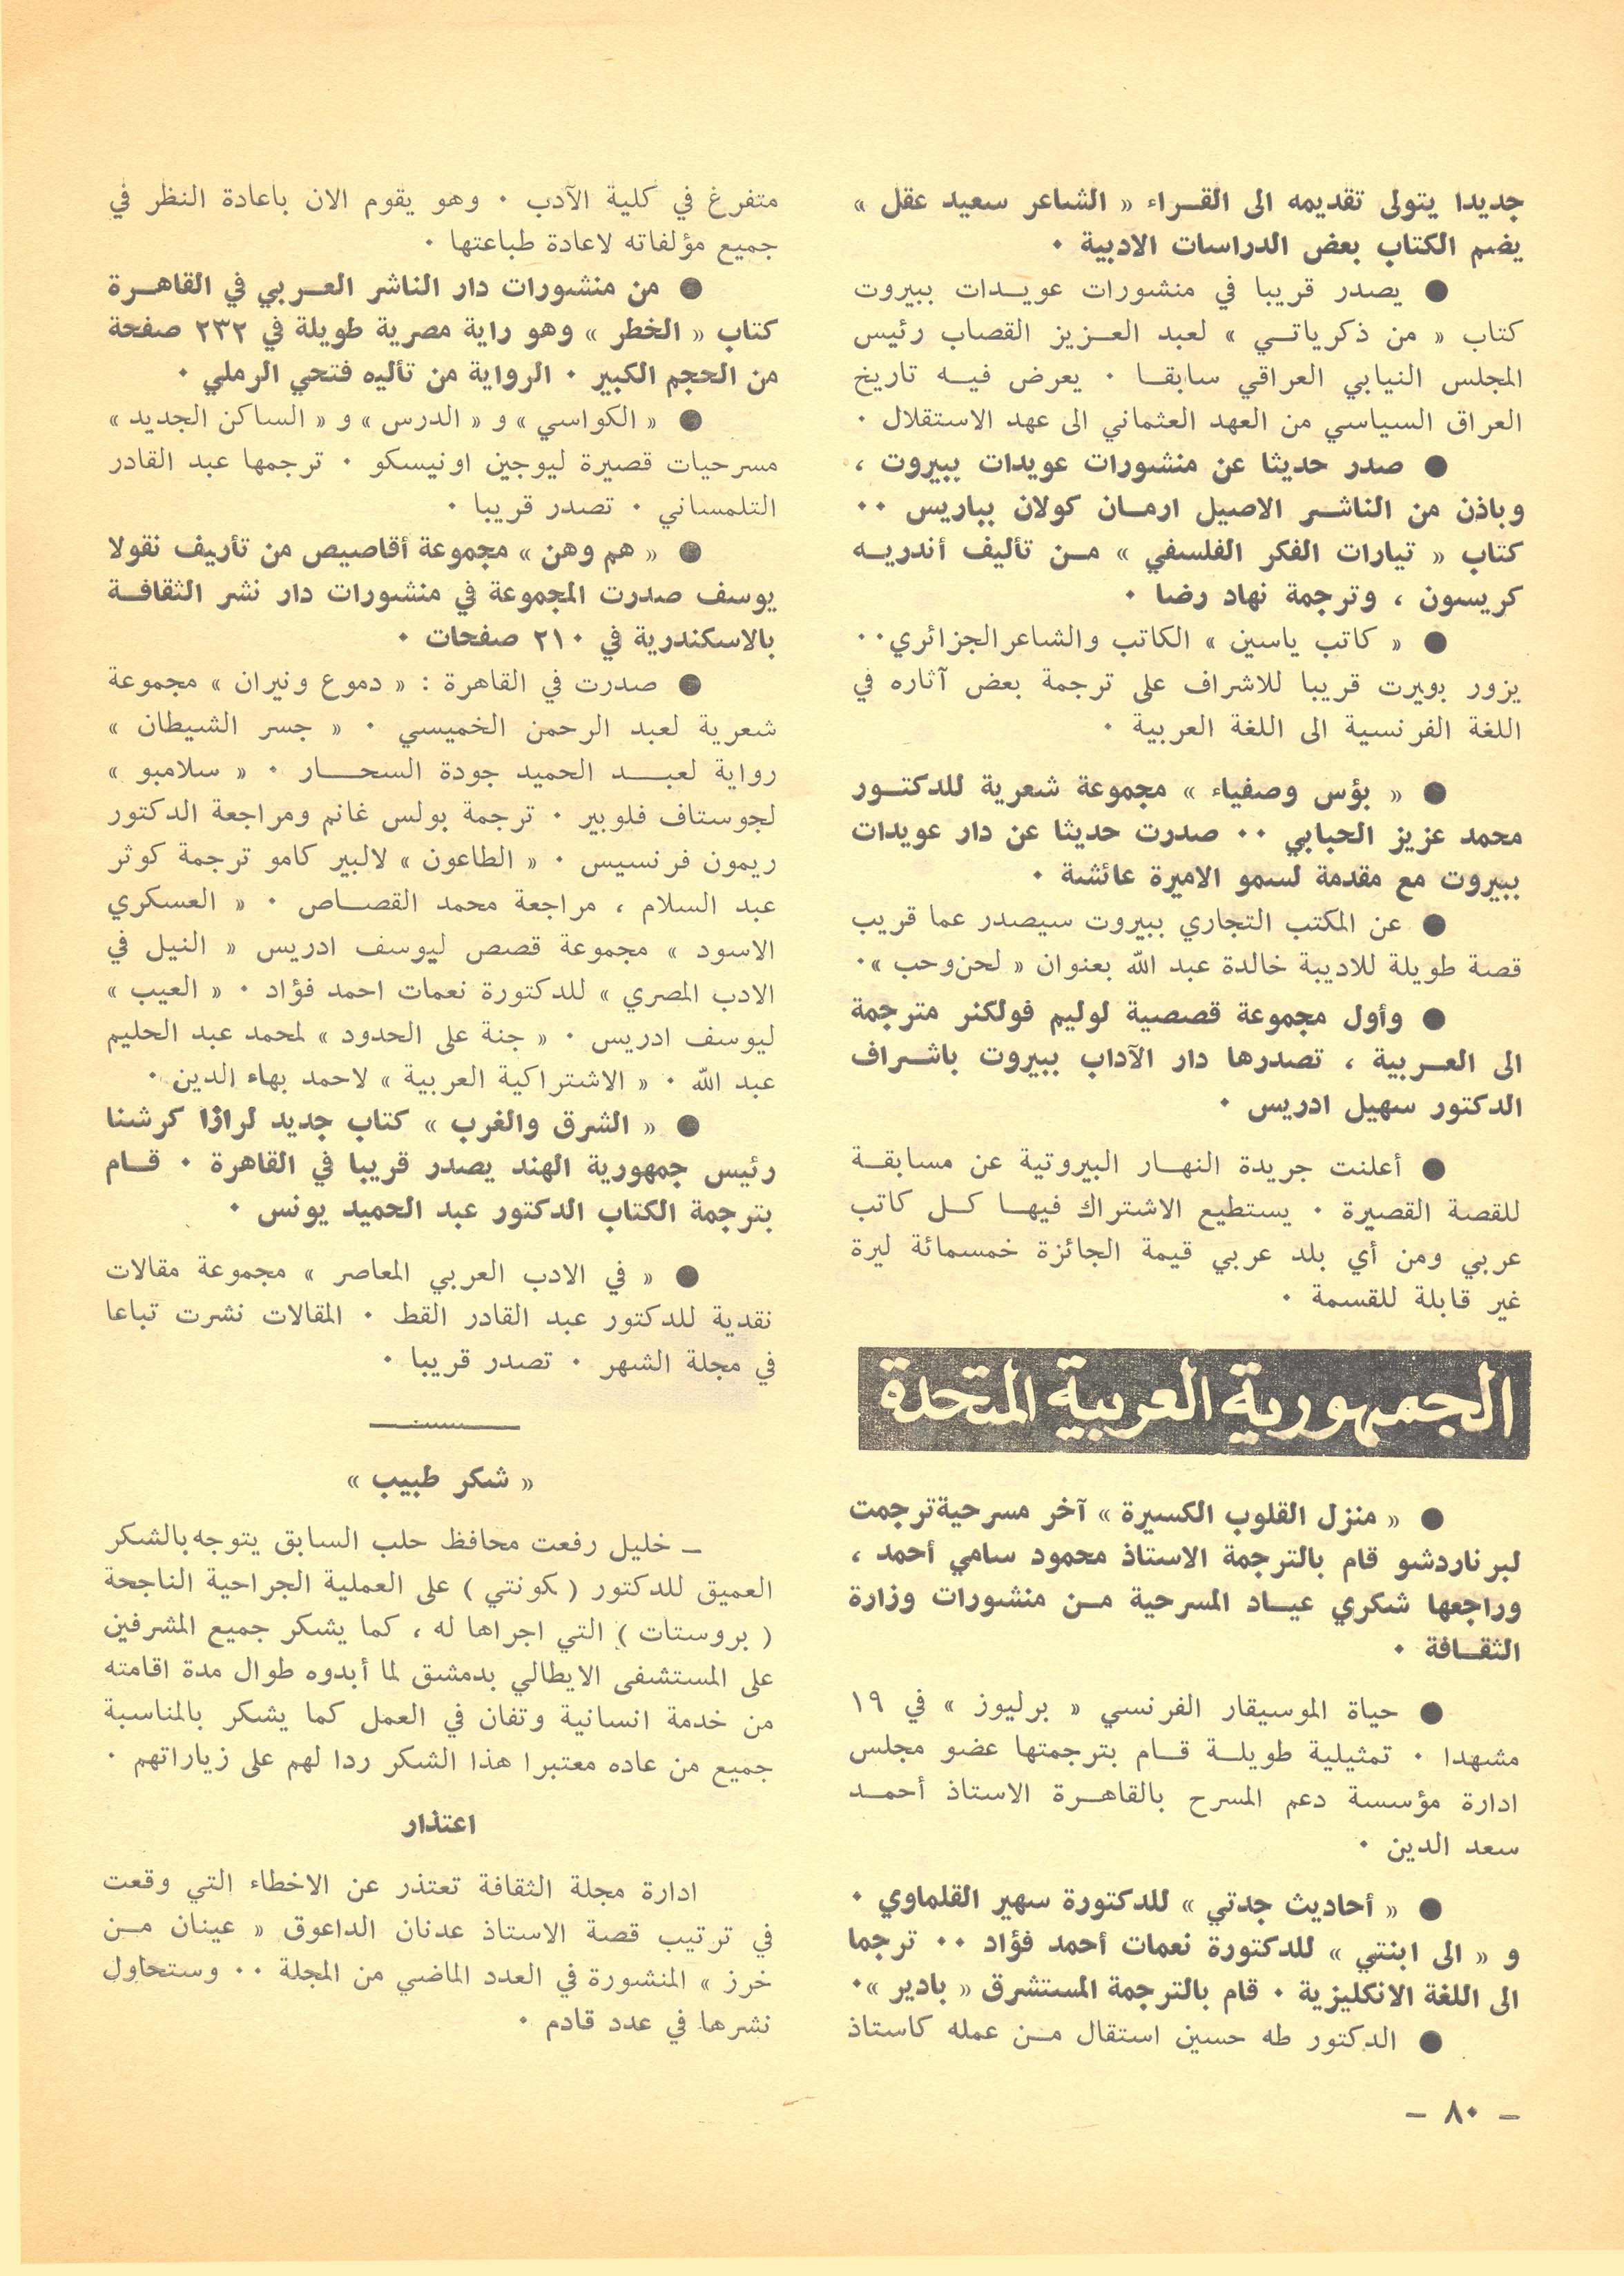 جديدا يتولى تقديمه الى القراء « الشاعر سعيد عقل »
يضم الكتاب بعض الدراسات الادبية ٠
● يصدر قريبا في منشورات عويدات ببيروت
كتاب « من ذكرياتي » لعبد العزيز القصاب رئيس
المجلس النيابي العراقي سابقا ٠ يعرض فيه تاريخ
العراق السياسي من العهد العثماني الى عهد الاستقلال ٠
● صدر حديثا عن منشورات عويدات ببيروت ،
وباذن من الناشر الاصيل ارمان كولان بباريس ٠٠
كتاب « تيارات الفكر الفلسفي » من تأليف أندريه
كريسون ، وترجمة نهاد رضا ٠
● « كاتب ياسين » الكاتب والشاعر الجزائري ٠٠
يزور بويرت قريبا للاشراف على ترجمة بعض آثاره في
اللغة الفرنسية الى اللغة العربية ٠
● « بؤس وصفياء » مجموعة شعرية للدكتور
محمد عزيز الحبابي ٠٠ صدرت حديثا عن دار عويدات
ببيروت مع مقدمة لسمو الاميرة عائشة ٠
● عن المكتب التجاري ببيروت سيصدر عما قريب
قصة طويلة للاديبة خالدة عبد الله بعنوان « لحن وحب »٠
● وأول مجموعة قصصية لوليم فولكنر مترجمة
الى العربية ، تصدرها دار الآداب ببيروت باشراف
الدكتور سهيل ادريس ٠
● أعلنت جريدة النهار البيروتية عن مسابقة
للقصة القصيرة ٠ يستطيع الاشتراك فيها كل كاتب
عربي ومن أي بلد عربي قيمة الجائزة خمسمائة ليرة
غير قابلة للقسمة ٠
الجمهورية العربية المتحدة
● « منزل القلوب الكسيرة » آخر مسرحية ترجمت
لبرناردشو قام بالترجمة الاستاذ محمود سامي أحمد ،
وراجعها شكري عياد المسرحية من منشورات وزارة
الثقافة ٠
● حياة الموسيقار الفرنسي « برليوز » في ١٩
مشهدا ٠ تمثيلية طويلة قام بترجمتها عضو مجلس
ادارة مؤسسة دعم المسرح بالقاهرة الاستاذ أحمد
سعد الدين ٠
● « أحاديث جدتي » للدكتورة سهير القلماوي ٠
و « الى ابنتي » للدكتورة نعمات أحمد فؤاد ٠٠ ترجما
الى اللغة الانكليزية ٠ قام بالترجمة المستشرق « بادير »٠
● الدكتور طه حسين استقال من عمله كاستاذ
متفرغ في كلية الآدب ٠ وهو يقوم الان باعادة النظر في
جميع مؤلفاته لاعادة طباعتها ٠
● من منشورات دار الناشر العربي في القاهرة
كتاب « الخطر » وهو راية مصرية طويلة في ٢٣٢ صفحة
من الحجم الكبير ٠ الرواية من تأليه فتحي الرملي ٠
● « الكواسي » و « الدرس » و « الساكن الجديد »
مسرحيات قصيرة ليوجين اونيسكو ٠ ترجمها عبد القادر
التلمساني ٠ تصدر قريبا ٠
● « هم وهن » مجموعة أقاصيص من تأريف نقولا
يوسف صدرت المجموعة في منشورات دار نشر الثقافة
بالاسكندرية في ٢١٠ صفحات ٠
● صدرت في القاهرة : « دموع ونيران » مجموعة
شعرية لعبد الرحمن الخميسي ٠ « جسر الشيطان »
رواية لعبد الحميد جودة السحار ٠ « سلامبو »
لجوستاف فلوبير ٠ ترجمة بولس غانم ومراجعة الدكتور
ريمون فرنسيس ٠ « الطاعون » لالبير كامو ترجمة كوثر
عبد السلام ، مراجعة محمد القصاص ٠ « العسكري
الاسود » مجموعة قصص ليوسف ادريس « النيل في
الادب المصري » للدكتورة نعمات احمد فؤاد ٠ « العيب »
ليوسف ادريس ٠ « جنة على الحدود » لمحمد عبد الحليم
عبد الله ٠ « الاشتراكية العربية » لاحمد بهاء الدين ٠
● « الشرق والغرب » كتاب جديد لراذا كرشنا
رئيس جمهورية الهند يصدر قريبا في القاهرة ٠ قام
بترجمة الكتاب الدكتور عبد الحميد يونس ٠
● « في الادب العربي المعاصر » مجموعة مقالات
نقدية للدكتور عبد القادر القط ٠ المقالات نشرت تباعا
في مجلة الشهر ٠ تصدر قريبا ٠
« شكر طبيب »
— خليل رفعت محافظ حلب السابق يتوجه بالشكر
العميق للدكتور ( كونتي ) على العملية الجراحية الناجحة
( بروستات ) التي اجراها له ، كما يشكر جميع المشرفين
على المستشفى الايطالي بدمشق لما أبدوه طوال مدة اقامته
من خدمة انسانية وتفان في العمل كما يشكر بالمناسبة
جميع من عاده معتبرا هذا الشكر ردا لهم على زياراتهم ٠
اعتذار
ادارة مجلة الثقافة تعتذر عن الاخطاء التي وقعت
في ترتيب قصة الاستاذ عدنان الداعوق « عينان من
خرز » المنشورة في العدد الماضي من المجلة ٠٠ وستحاول
نشرها في عدد قادم ٠
— ٨٠ —